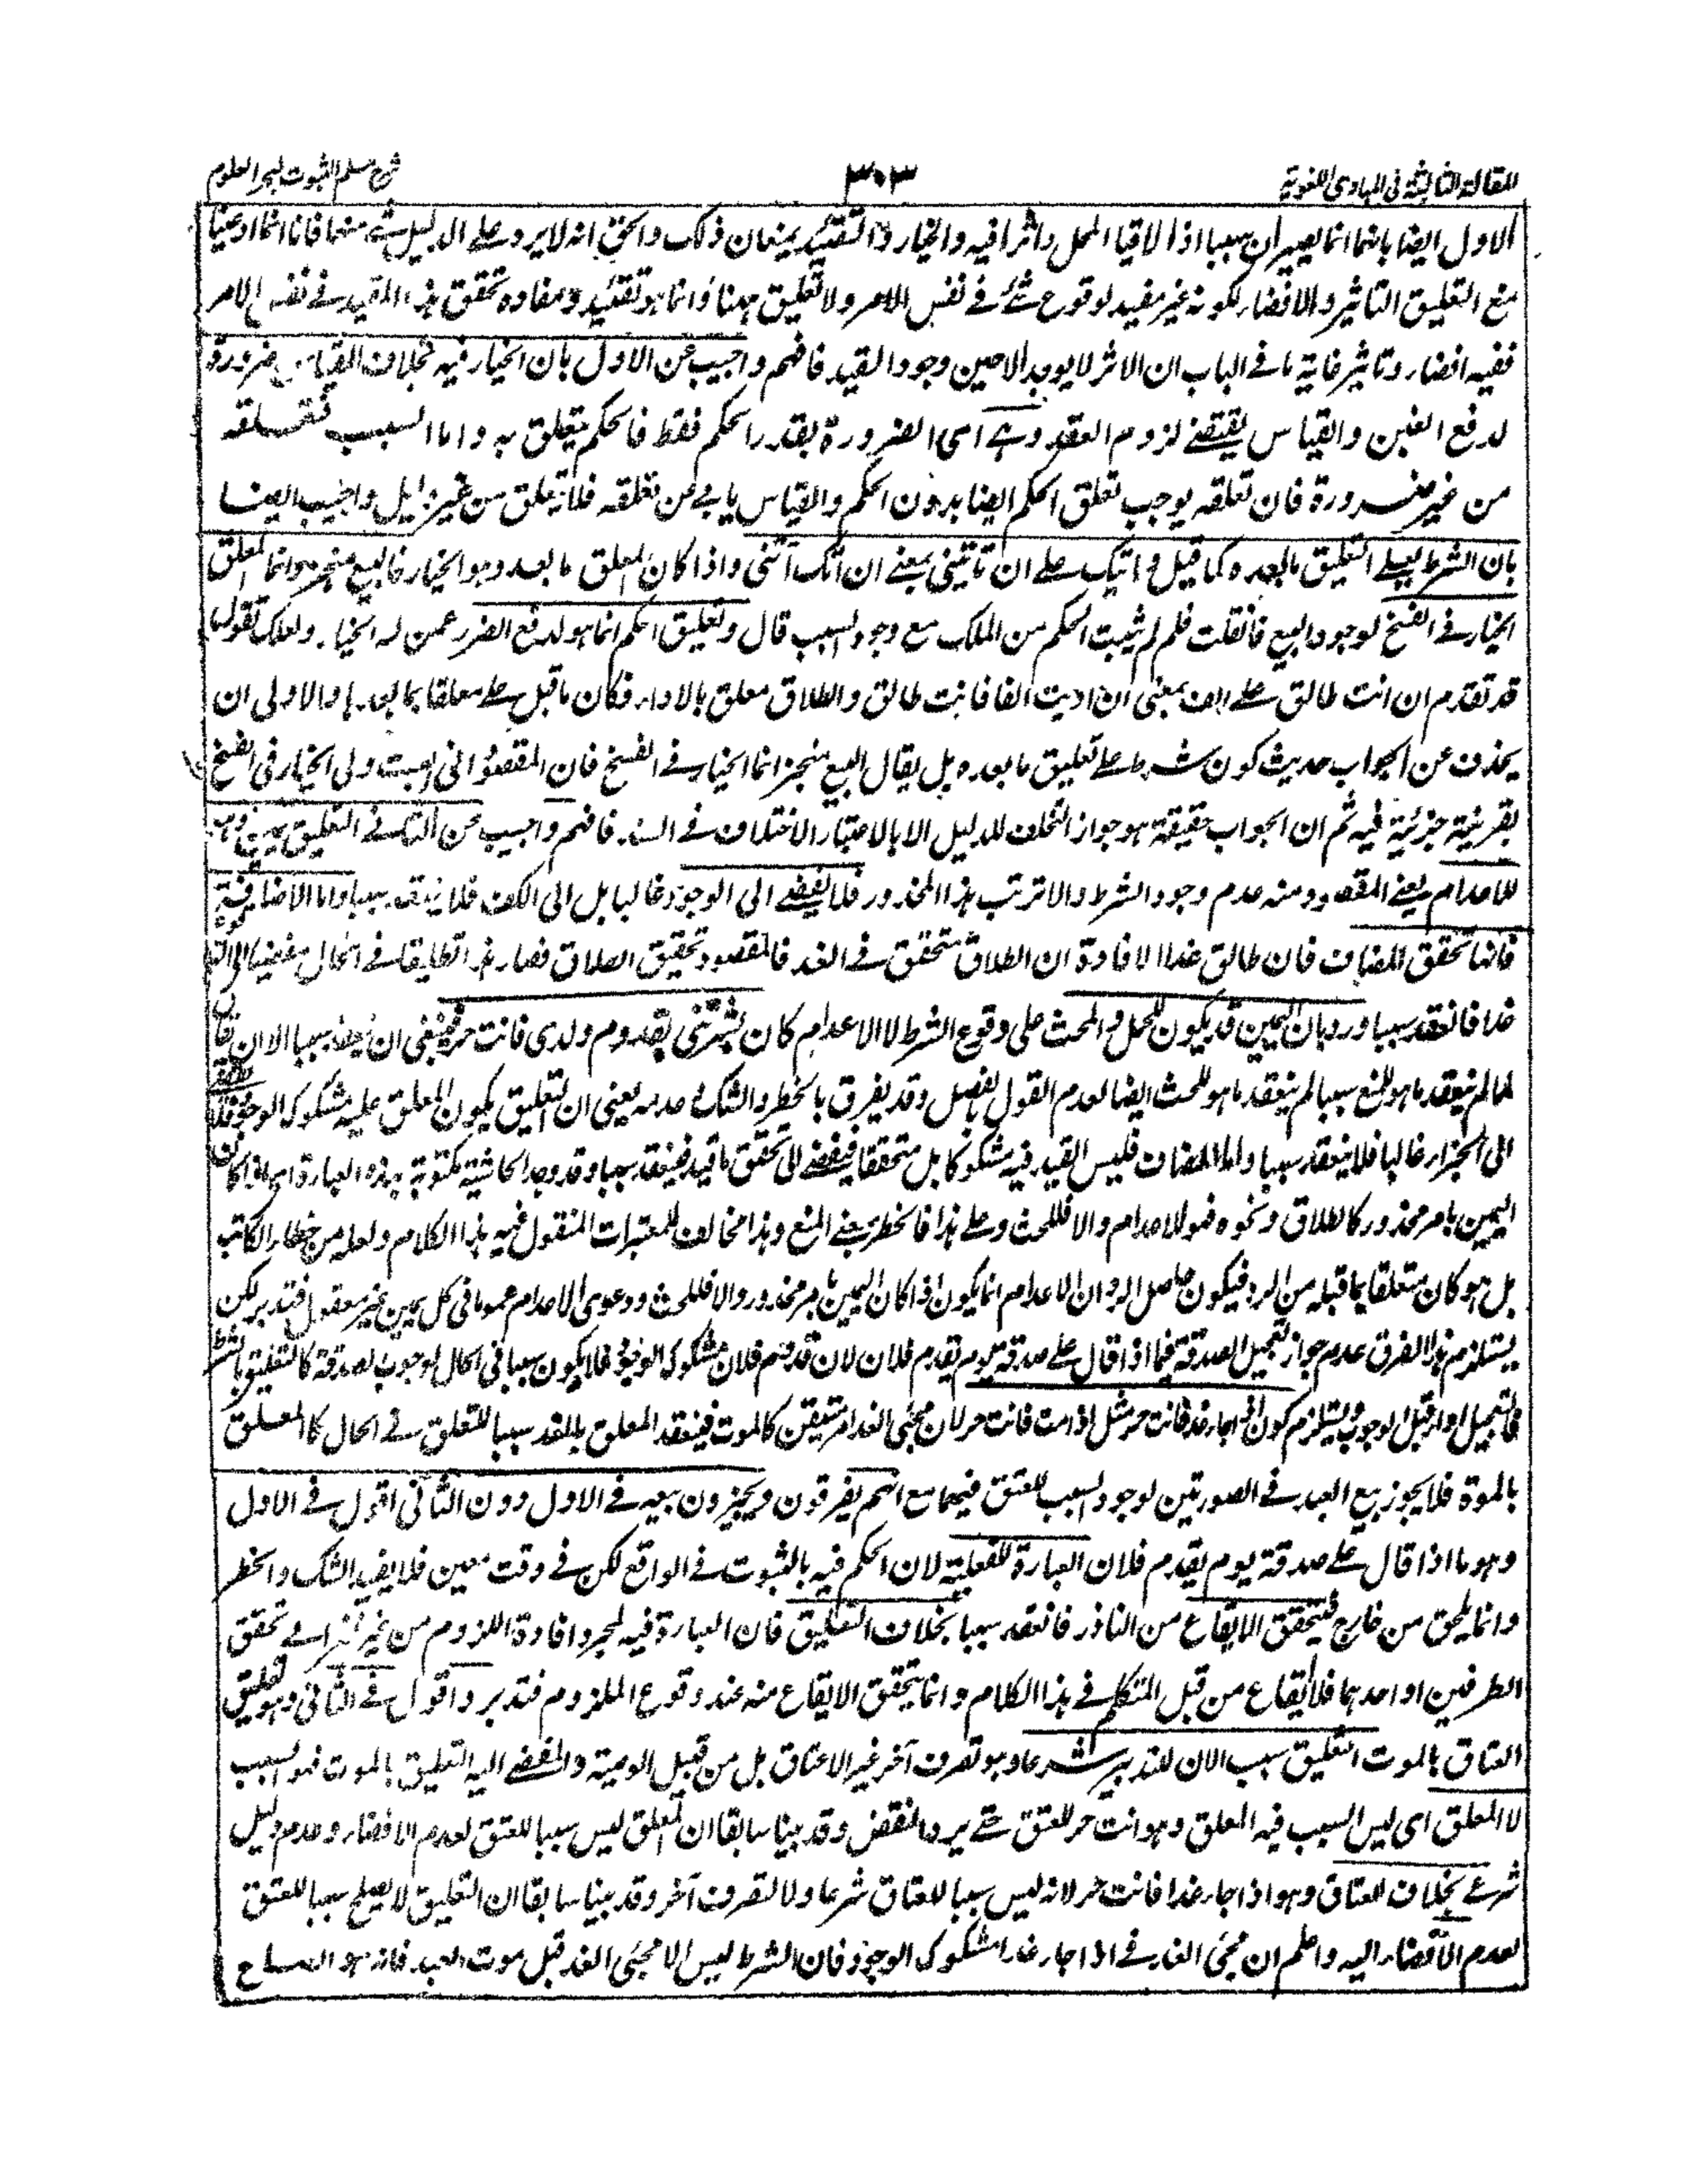 المقالة الثالثة فى المبادى اللغوية
٣٠٣
شرح مسلم الثبوت لبحر العلوم
الاول ايضا بانهما انما يصيران سببا اذا لاقيا المحل واثرا فيه والخيار والتقييد يمنعان ذلك والحق انه لا يرد على الدليل شئ منهما فانا انما ادعينا
منع التعليق التاثير والافضاء لكونه غير مفيد لوقوع شئ فى نفس الامر ولا تعليق ههنا وانما هو تقييد ومفاده تحقق هذا المقيد فى نفس الامر
ففيه افضاء وتاثير غاية ما فى الباب ان الاثر لا يوجد الا حين وجود القيد فافهم واجيب عن الاول بان الخيار فيه بخلاف القياس ضرورة
لدفع الغبن والقياس يقتضى لزوم العقد وهى اى الضرورة بقدر الحكم فقط فالحكم يتعلق به واما السبب فتعلقه
من غير ضرورة فان تعلقه يوجب تعلق الحكم ايضا بدون الحكم والقياس يابى عن تعلقه فلا يتعلق من غير دليل واجيب ايضا
بان الشرط بعلى لتعليق ما بعده كما قيل فى اتيك على ان تاتينى بمعنى ان اتك اتتنى واذا كان المعلق ما بعده وهو الخيار فالبيع منجز وانما المعلق
الخيار فى الفسخ لوجود البيع فان قلت فلم لم يثبت الحكم من الملك مع وجود السبب قال وتعليق الحكم انما هو لدفع الضرر عمن له الخيار ولعلك تقول
قد تقدم ان انت طالق على الف بمعنى ان اديت الفا فانت طالق والطلاق معلق بالاداء فكان ما قبل على معلقا بما بعدها والاولى ان
يحذف عن الجواب حديث كون شرط على لتعليق ما بعده بل يقال البيع منجز انما الخيار فى الفسخ فان المقصود انى بعت ولى الخيار فى الفسخ
بقرينة جزئية فيه ثم ان الجواب حقيقة هو جواز التخلف للدليل الا بالاعتبار الاختلاف فى السند فافهم واجيب عن الثانى التعليق يمين وهى
للاعدام يعنى المقصود منه عدم وجود الشرط والا ترتب هذا المحذور فلا يفضى الى الوجود غالبا بل الى الكف فلا ينعقد سببا واما الاضافة
فانها تحقق المضاف فان طالق غدا لافادة ان الطلاق متحقق فى الغد فالمقصود تحقيق الطلاق فصار تطليقا فى الحال مفضيا الى الوقوع
غدا فانعقد سببا ورد بان اليمين قد يكون للحمل والحث على وقوع الشرط لا الاعدام كان بشرتنى بقدوم ولدى فانت حر فينبغى ان ينعقد سببا الا ان يقال
لما لم ينعقد ما هو للمنع سببا لم ينعقد ما هو للحث ايضا لعدم القول بالفصل وقد يفرق بالخطر والشك وعدمه يعنى ان التعليق يكون المعلق عليه مشكوك الوجود فلا يفضى
الى الجزاء غالبا فلا ينعقد سببا واما المضاف فليس القيد فيه مشكوكا بل متحققا فيفضى الى تحقق ما قيد فينعقد سببا وقد وجد الحاشية مكتوبة بهذه العبارة اى اذا كان
اليمين بامر محذور كالطلاق ونحوه فهو للاعدام والا فللحث وعلى هذا فالخطر بمعنى المنع وهذا مخالف للمعتبرات المنقول عنه هذا الكلام ولعله من خطاء الكاتب
بل هو كان متعلقا بما قبله من الرد فيكون حاصل الرد ان الاعدام انما يكون اذا كان اليمين بامر محذور والا فللحث ودعوى الاعدام عموما فى كل يمين غير معقول فتدبر لكن
يستلزم هذا الفرق عدم جواز تعجيل الصدقة فيما اذا قال على صدقة يوم يقدم فلان لان قدوم فلان مشكوك الوجود فلا يكون سببا فى الحال لوجوب الصدقة كالتعليق بالشرط
فالتعجيل اداء قبل الوجوب ويستلزم كون اذا جاء غد فانت حر مثل اذا مت فانت حر لان مجئى الغد امر متيقن كالموت فينعقد المعلق بالغد سببا للتعلق فى الحال كالمعلق
بالموة فلا يجوز بيع العبد فى الصورتين لوجود السبب للعتق فيهما مع انهم يفرقون ويجيزون بيعه فى الاول دون الثانى اقول فى الاول
وهو ما اذا قال على صدقة يوم يقدم فلان العبارة للفعلية لان الحكم فيه بالثبوت فى الواقع لكن فى وقت معين فلا يفيد الشك والخطر
وانما يلحق من خارج فيتحقق الايقاع من الناذر فانعقد سببا بخلاف التعليق فان العبارة فيه لمجرد افادة اللزوم من غير نظر الى تحقق
الطرفين او احدهما فلا ايقاع من قبل المتكلم فى هذا الكلام وانما يتحقق الايقاع منه عند وقوع الملزوم فتدبر واقول فى الثانى وهو تعليق
العتاق بالموت التعليق سبب الان للتدبير شرعا وهو تصرف آخر غير الاعتاق بل من قبيل الوصية والمفضى اليه التعليق بالموت فهو السبب
لا المعلق اى ليس السبب فيه المعلق وهو انت حر للعتق حتى يرد النقض وقد بينا سابقا ان المعلق ليس سببا للعتق لعدم الافضاء وعدم دليل
شرعى بخلاف العتاق وهو اذا جاء غدا فانت حر لانه ليس سببا للعتاق شرعا ولا لتصرف آخر وقد بينا سابقا ان التعليق لا يصلح سببا للعتق
لعدم الافضاء اليه واعلم ان مجئى الغد فى اذا جاء غدا مشكوك الوجود فان الشرط ليس الا مجئى الغد قبل موت العبد فانه هو الصالح